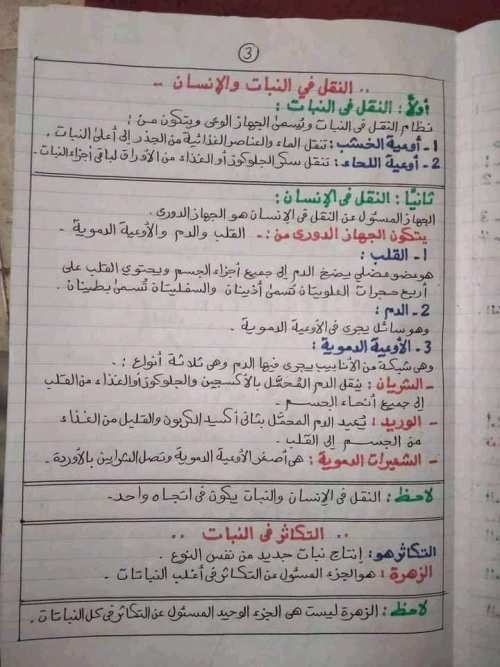 3
.. النقل في النبات والإنسان ..
أولاً: النقل فى النبات:
نظام النقل فى النبات ويُسمى الجهاز الوعى ويتكون من:
1- أوعية الخشب: تنقل الماء والعناصر الغذائية من الجذر إلى أعلى النبات.
2- أوعية اللحاء: تنقل سكر الجلوكوز أو الغذاء من الأوراق لباقى أجزاء النبات.
ثانيًا: النقل فى الإنسان:
الجهاز المسئول عن النقل فى الإنسان هو الجهاز الدورى.
يتكون الجهاز الدورى من:- القلب والدم والأوعية الدموية -
1- القلب:
هو عضو عضلي يضخ الدم إلى جميع أجزاء الجسم ويحتوي القلب على
أربع حجرات العلويتان تُسمى أذينان والسفليتان تُسمى بطينان.
2- الدم:
وهو سائل يجرى فى الأوعية الدموية.
3- الأوعية الدموية:
وهى شبكة من الأنابيب يجرى فيها الدم وهى ثلاثة أنواع:-
- الشريان: ينقل الدم المُحمَّل بالأكسجين والجلوكوز أو الغذاء من القلب
إلى جميع أنحاء الجسم -
- الوريد: يُعيد الدم المحمَّل بثانى أكسيد الكربون والقليل من الغذاء
من الجسم إلى القلب.
- الشعيرات الدموية: هى أصغر الأوعية الدموية وتصل الشرايين بالأوردة.
لاحظ: النقل فى الإنسان والنبات يكون فى اتجاه واحد-
.. التكاثر فى النبات ..
التكاثر هو: إنتاج نبات جديد من نفس النوع.
الزهرة: هو الجزء المسئول عن التكاثر فى أغلب النباتات.
لاحظ: الزهرة ليست هى الجزء الوحيد المسئول عن التكاثر فى كل النباتات.